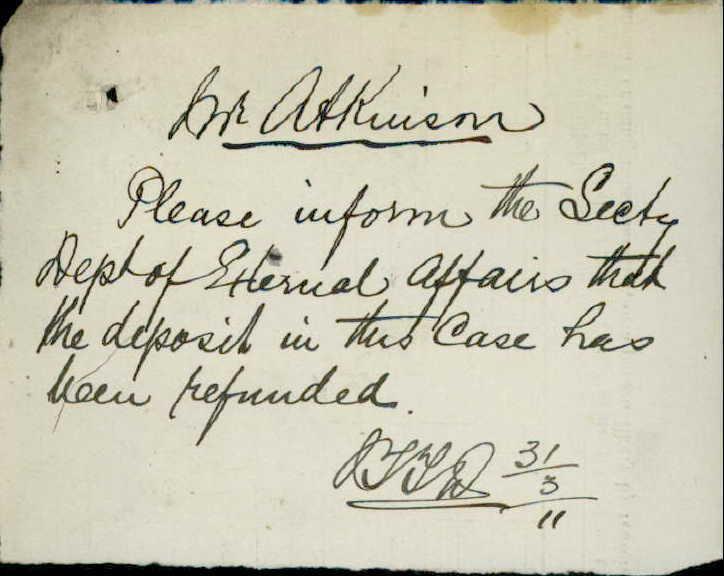 Mr Atkinson
Please inform the Secty
Dept of External Affairs that
the deposit in this Case has
been refunded.
31
3
11